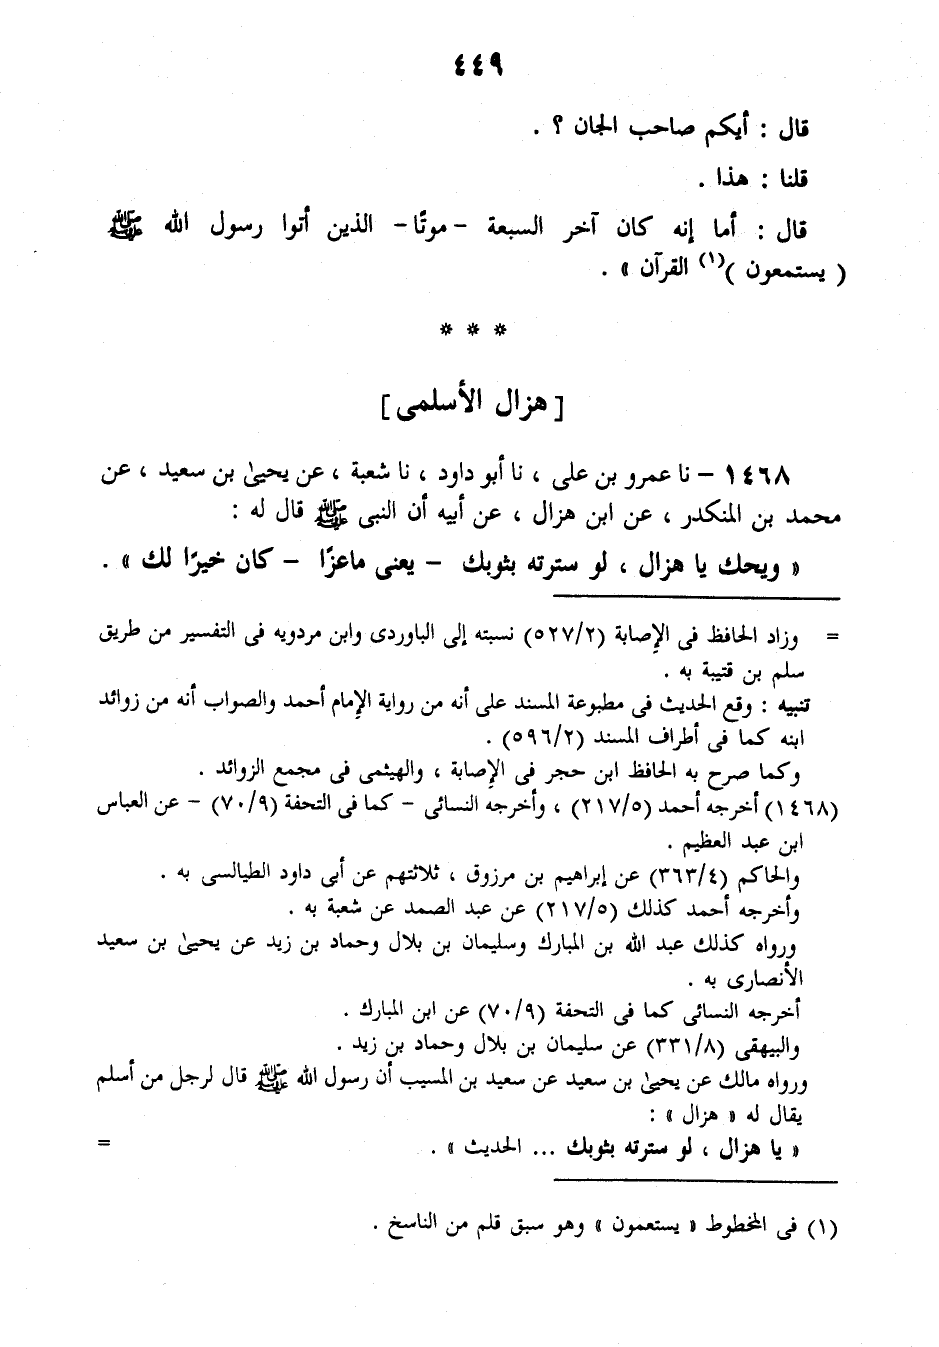 ٤٤٩
قال : أيكم صاحب الجان ؟ .
قلنا : هذا .
قال : أما إنه كان آخر السبعة - موتًا - الذين أتوا رسول الله ﷺ
( يستمعون )(١) القرآن » .
* * *
[ هزال الأسلمى ]
١٤٦٨ - نا عمرو بن على ، نا أبو داود ، نا شعبة ، عن يحيىٰ بن سعيد ، عن
محمد بن المنكدر ، عن ابن هزال ، عن أبيه أن النبى ﷺ قال له :
« ويحك يا هزال ، لو سترته بثوبك - يعنى ماعزًا - كان خيرًا لك » .
= وزاد الحافظ فى الإصابة (٥٢٧/٢) نسبته إلى الباوردى وابن مردويه فى التفسير من طريق
سلم بن قتيبة به .
تنبيه : وقع الحديث فى مطبوعة المسند على أنه من رواية الإمام أحمد والصواب أنه من زوائد
ابنه كما فى أطراف المسند (٥٩٦/٢) .
وكما صرح به الحافظ ابن حجر فى الإصابة ، والهيثمى فى مجمع الزوائد .
(١٤٦٨) أخرجه أحمد (٢١٧/٥) ، وأخرجه النسائى - كما فى التحفة (٧٠/٩) - عن العباس
ابن عبد العظيم .
والحاكم (٣٦٣/٤) عن إبراهيم بن مرزوق ، ثلاثتهم عن أبى داود الطيالسى به .
وأخرجه أحمد كذلك (٢١٧/٥) عن عبد الصمد عن شعبة به .
ورواه كذلك عبد الله بن المبارك وسليمان بن بلال وحماد بن زيد عن يحيىٰ بن سعيد
الأنصارى به .
أخرجه النسائى كما فى التحفة (٧٠/٩) عن ابن المبارك .
والبيهقى (٣٣١/٨) عن سليمان بن بلال وحماد بن زيد .
ورواه مالك عن يحيىٰ بن سعيد عن سعيد بن المسيب أن رسول الله ﷺ قال لرجل من أسلم
يقال له « هزال » :
« يا هزال ، لو سترته بثوبك ... الحديث » . =
(١) فى المخطوط « يستعمون » وهو سبق قلم من الناسخ .